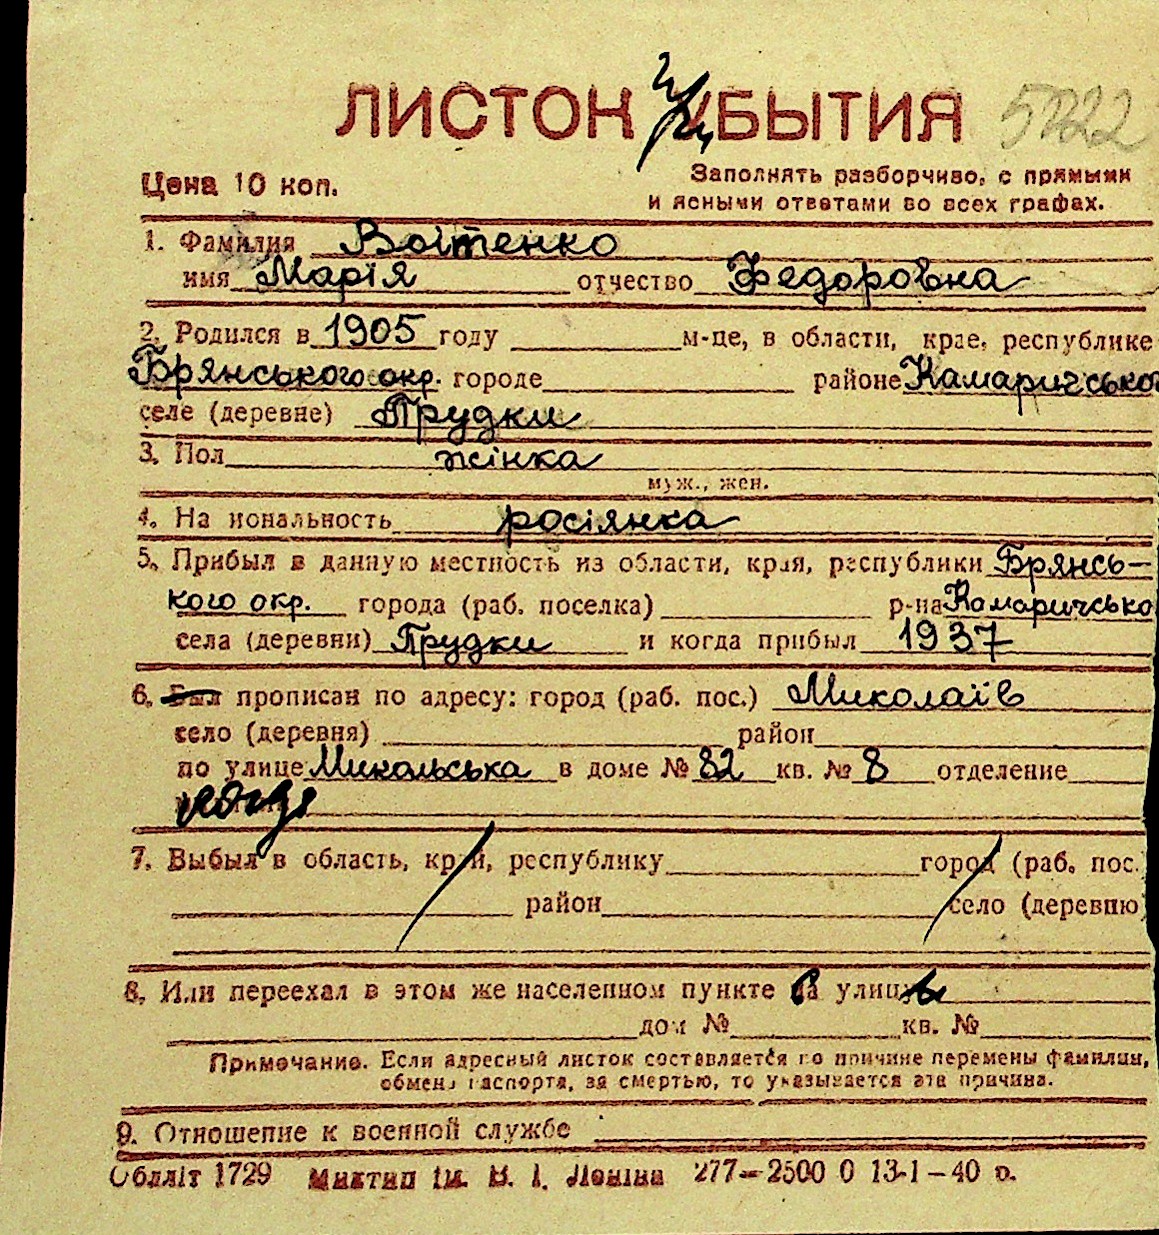 ЛИСТОК при БЫТИЯ 5222
Цена 10 коп.
Заполнять разборчиво, с прямыми
и ясными ответами во всех графах.
1. Фамилия Воітенко
имя Марія отчество Федоровна
2. Родился в 1905 году м-це, в области, крае, республике
Брянського окр. городе районе Камаричсько
селе (деревне) Прудки
3. Пол жінка
муж., жен.
4. На иональность росіянка
5. Прибыл в данную местность из области, края, республики Брянсь-
кого окр. города (раб. поселка) р-на Камаричсько
села (деревни) Прудки и когда прибыл 1937
6. Был прописан по адресу: город (раб. пос.) Миколаїв
село (деревня) район
по улице Микольська в доме № 82 кв. № 8 отделение
7. Выбыл в область, край, республику город (раб. пос.
район село (деревню
8. Или переехал в этом же населенном пункте улицы
дом № кв. №
Примечание. Если адресный листок составляется по причине перемены фамилии,
обмена паспорта, за смертью, то указывается эта причина.
9. Отношение к военной службе
Обллiт 1729 Миктип iм. В. I. Ленiна 277–2500 0 13-1–40 р.